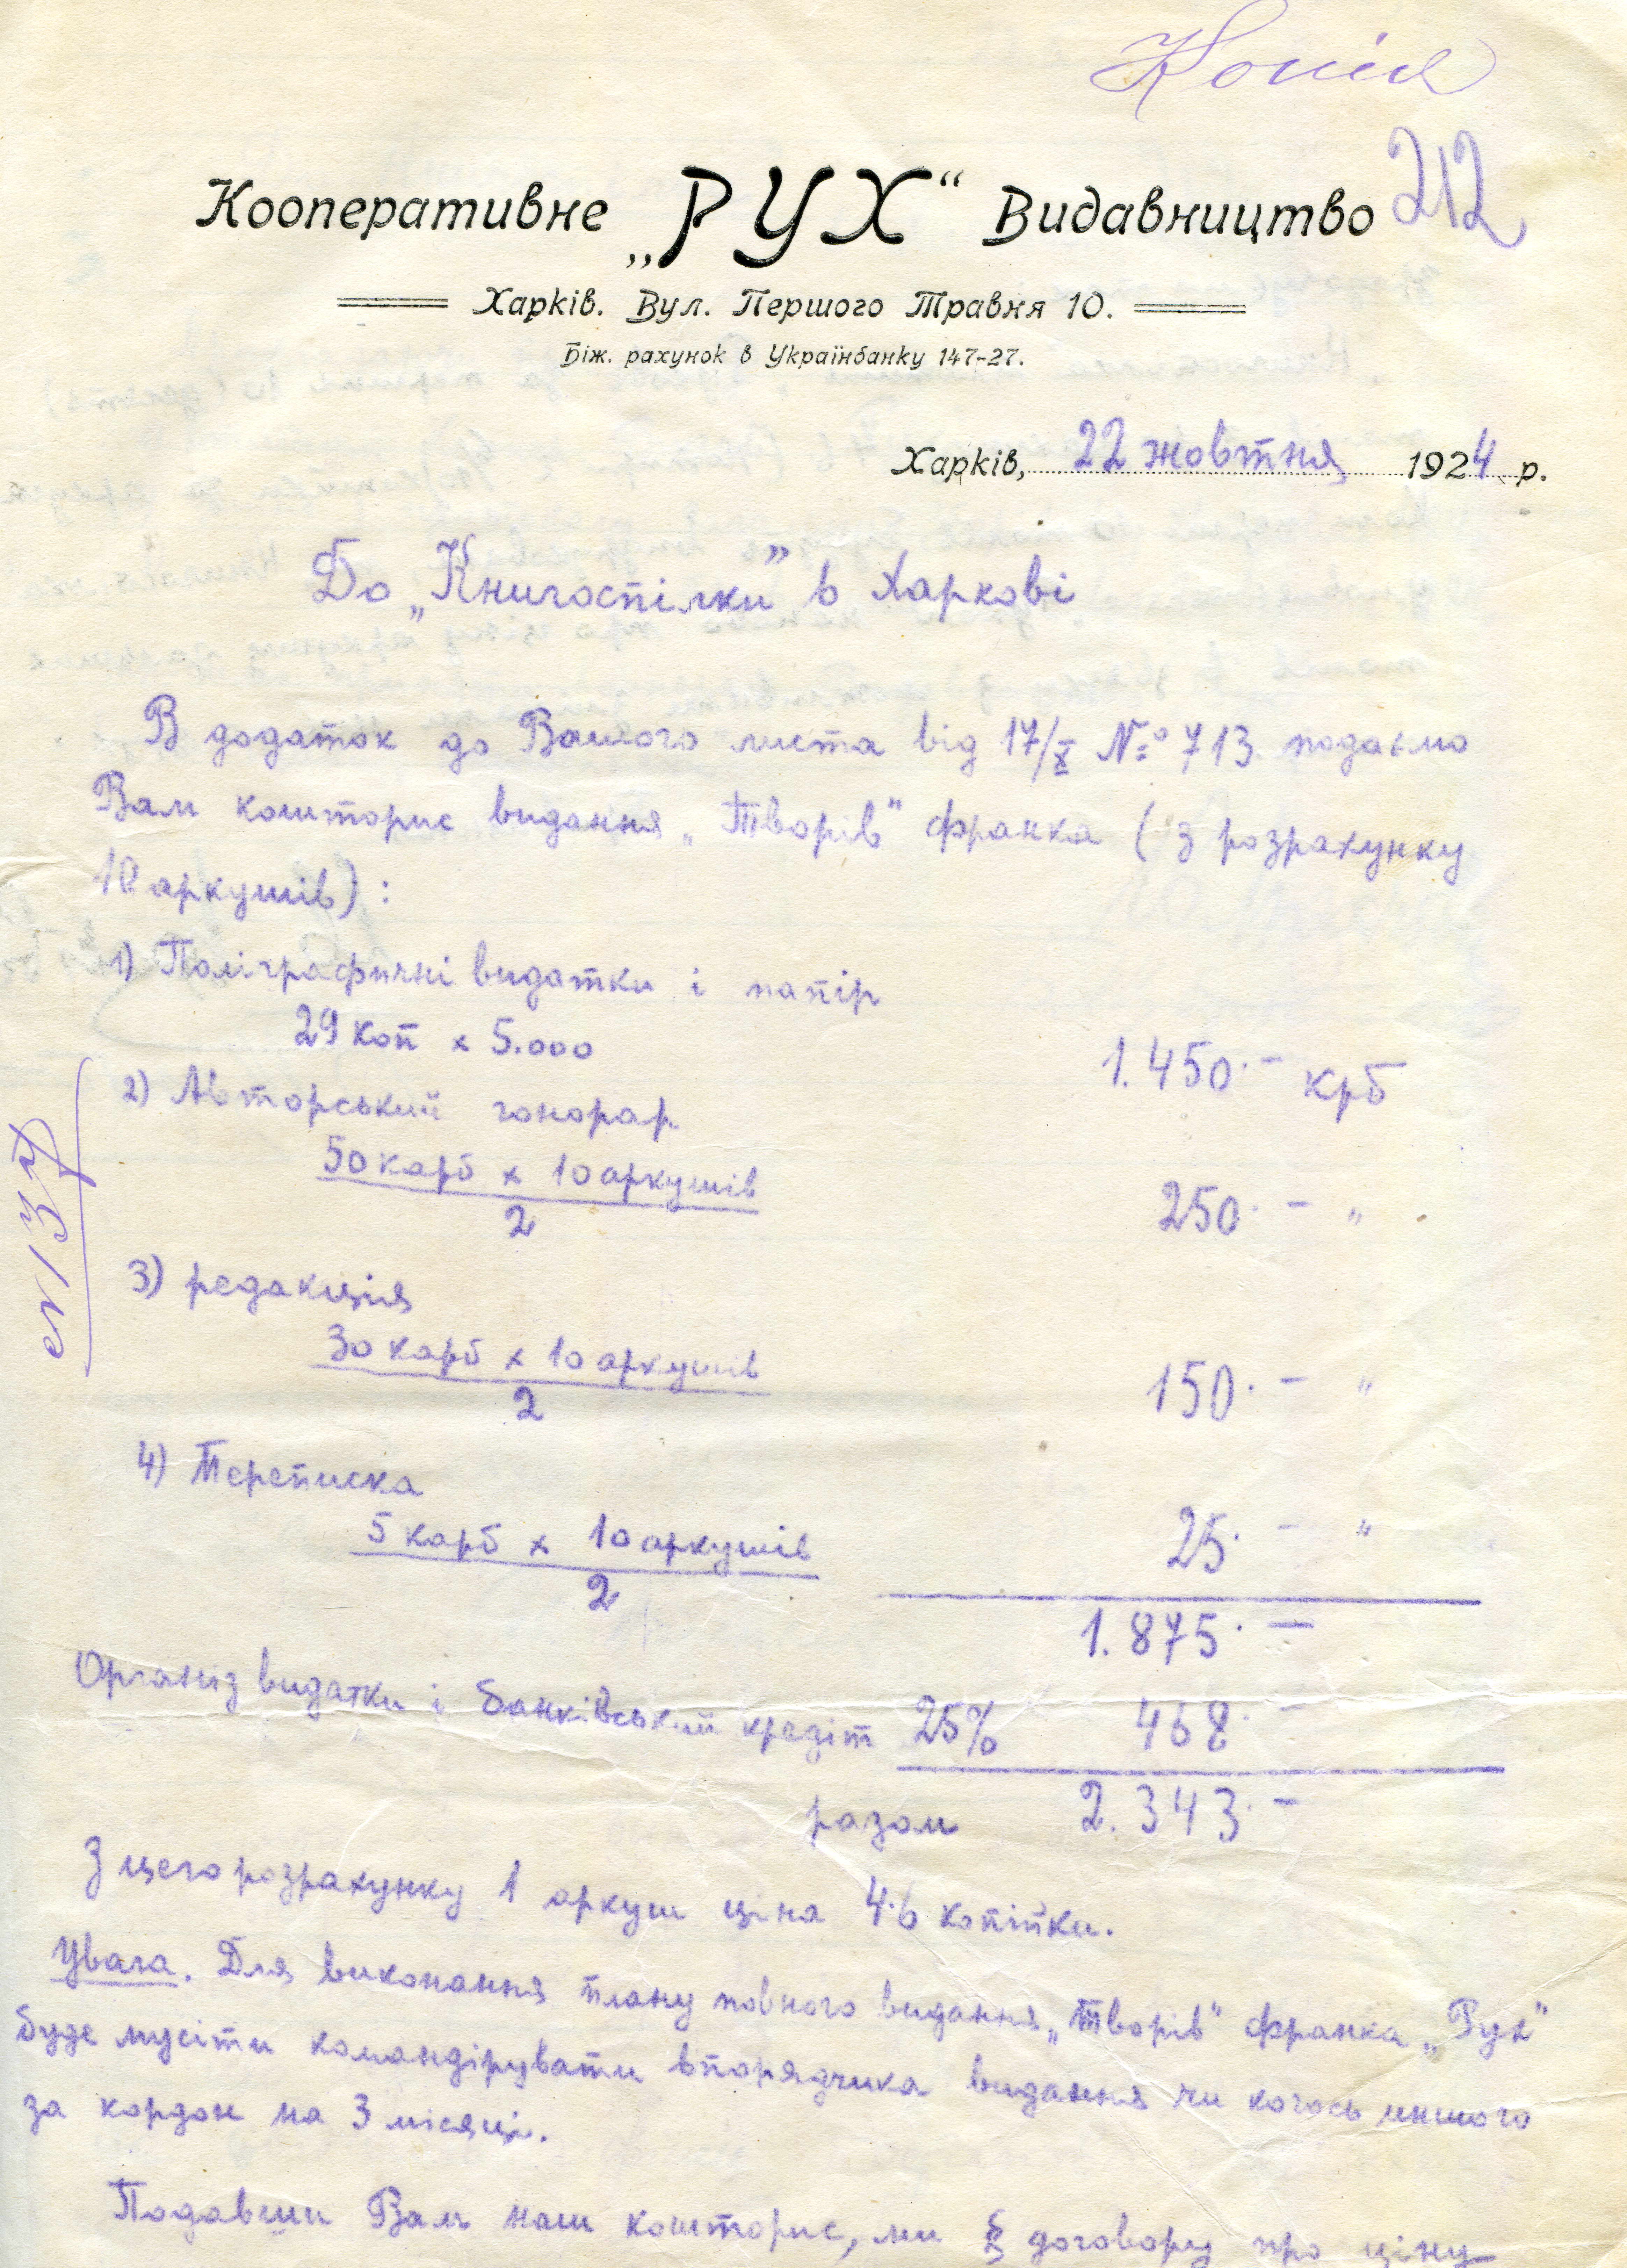 Копія
212
Кооперативне „РУХ“ Видавництво
Харків. Вул. Першого Травня 10.
Біж. рахунок в Українбанку 147-27.
Харків, 22 жовтня 1924 р.
До „Книгоспілки” в Харкові
В додаток до Вашого листа від 17/X № 713 подаємо
Вам кошторис видання „Творів“ Франка (з розрахунку
10 аркушів):
1) Поліграфичні видатки і папір
29 коп x 5.000
1.450.– крб
2) Авторський гонорар
50 карб x 10 аркушів
2
250.– „
3) редакція
30 карб x 10 аркушів
2
150.– „
4) Переписка
5 карб x 10 аркушів
2
25.– „
1.875.–
Організ видатки і банківський кредіт 25% 468.–
разом 2.343.–
З цего розрахунку 1 аркуш ціна 4.6 копійки.
Увага. Для виконання плану повного видання „Творів“ Франка „Рух“
буде мусіти командірувати впорядчика видання чи когось иншого
за кордон на 3 місяці.
Подавши Вам наш кошторис, ми § договору про ціну